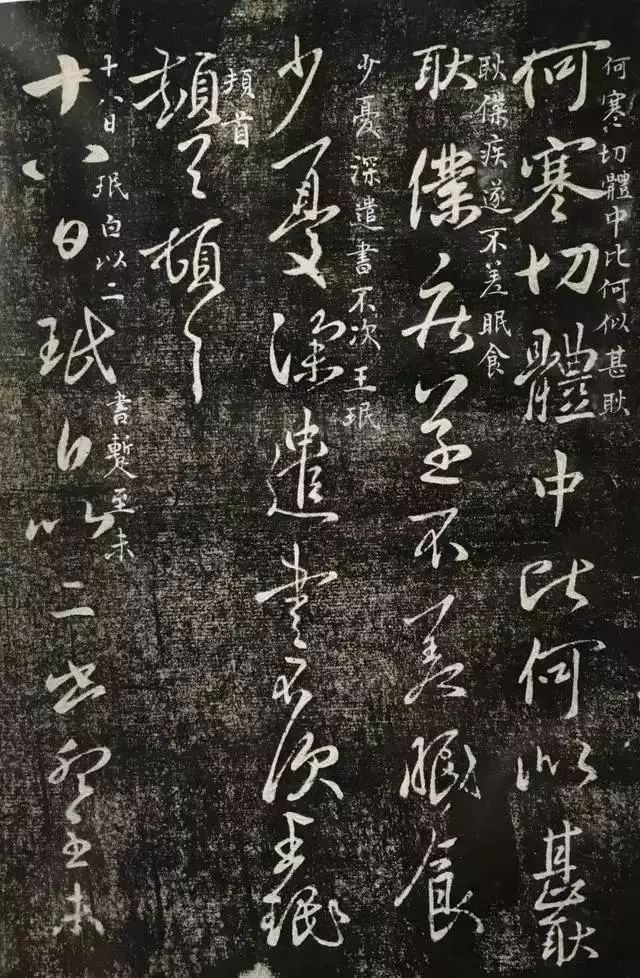 何寒切體中比何似甚耿
何寒切體中比何似甚耿
耿僕疾遂不差眠食
耿僕疾遂不差眠食
少憂深遣書不次王珉
少憂深遣書不次王珉
頓首
頓首頓首
十八日珉白以二書暫至未
十八日珉白以二書暫至未